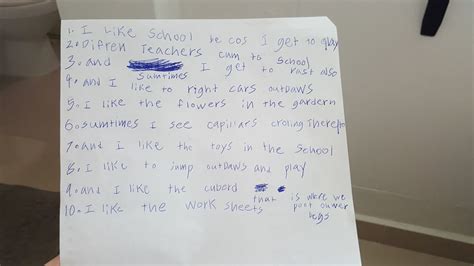 1. I like School be cos I get to play
2. Difren Teachers cum to School
3. and sumtimes I get to rast also
4. and I like to right cars outdaws
5. I like the flowers in the gardern
6. sumtimes I see capiliars croling There
7. and I like the toys in the School
8. I like to jump outdaws and play
9. and I like the cubord that is were we
10. I like the work sheets poot ouwer
begs